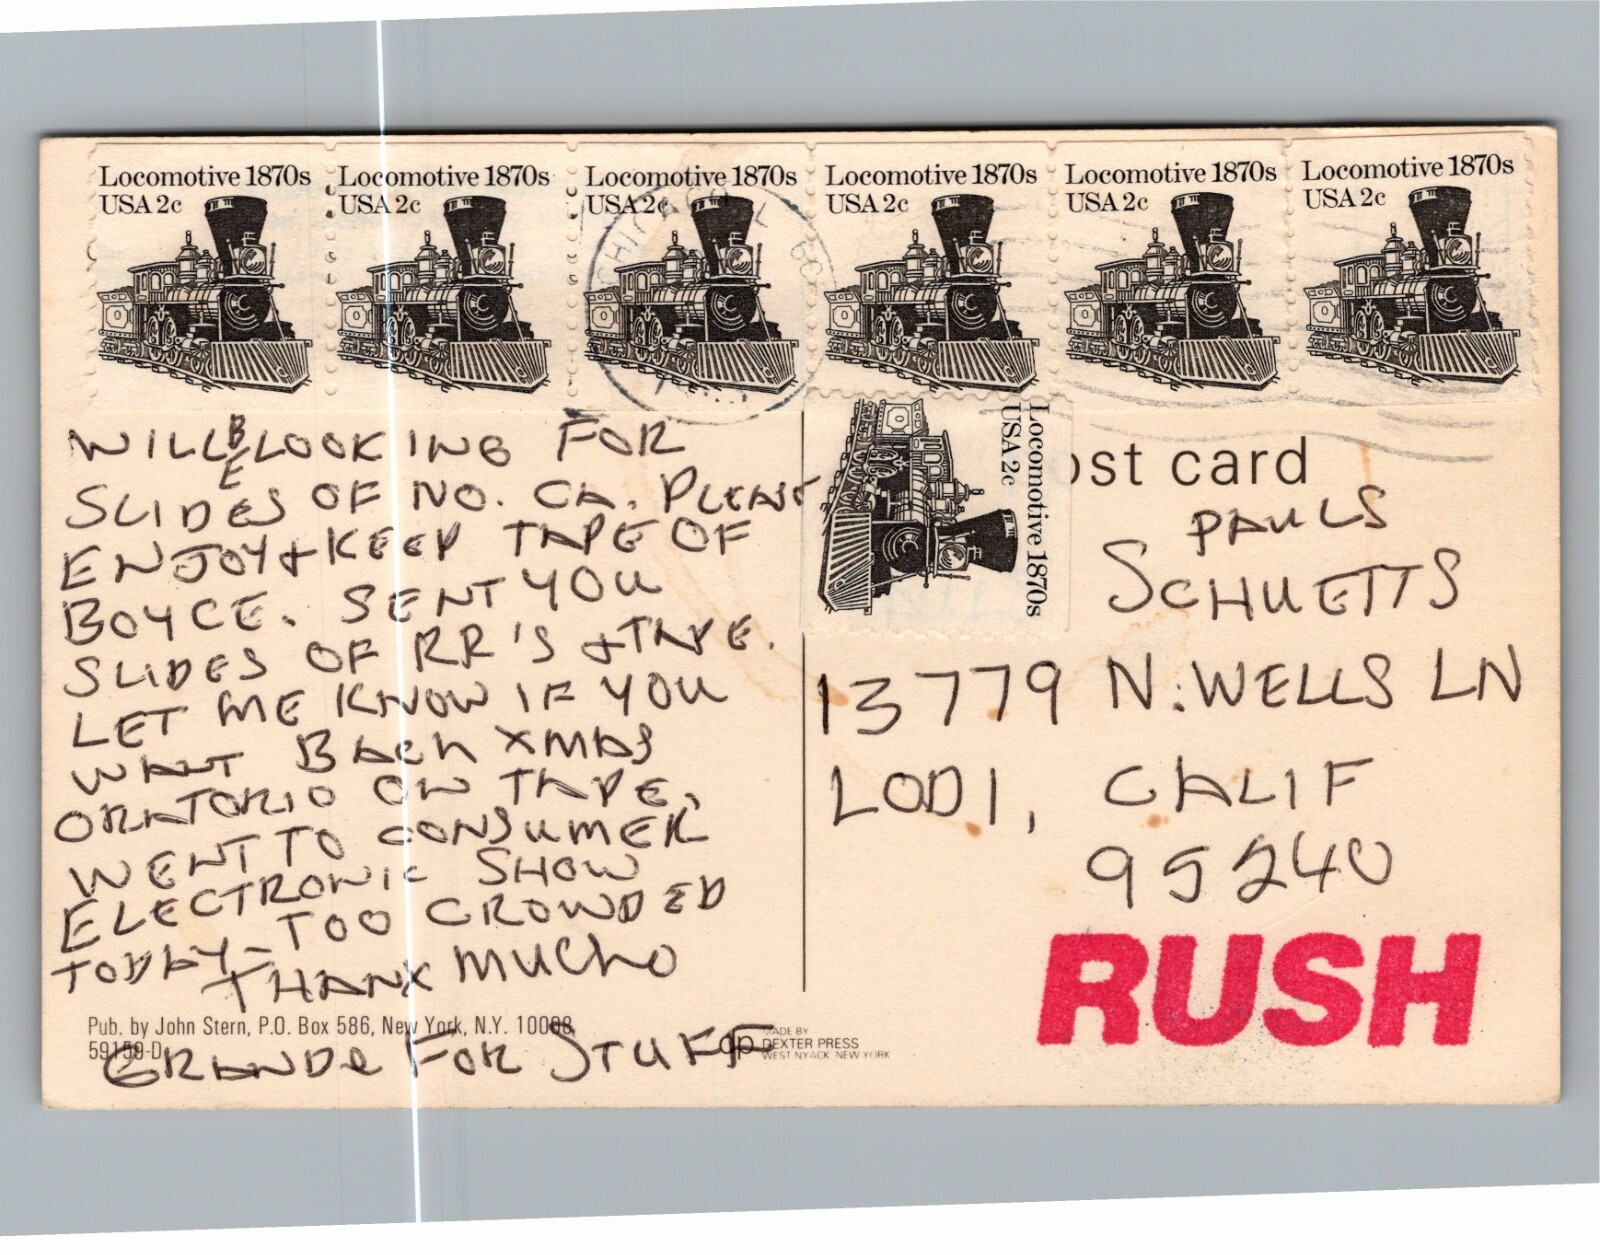 Locomotive 1870s
USA 2c
Locomotive 1870s
USA 2c
Locomotive 1870s
USA 2c
Locomotive 1870s
USA 2c
Locomotive 1870s
USA 2c
Locomotive 1870s
USA 2c
Locomotive 1870s
USA 2c
WILL BE LOOKING FOR
SLIDES OF NO. CA. PLEASE
ENJOY & KEEP TAPE OF
BOYCE. SENT YOU
SLIDES OF RR'S & TAPE.
LET ME KNOW IF YOU
WANT BACH XMAS
ORATORIO ON TAPE.
WENT TO CONSUMER
ELECTRONIC SHOW
TODAY - TOO CROWDED
THANX MUCHO
GRANDE FOR STUFF
Pub. by John Stern, P.O. Box 586, New York, N.Y. 10008
59159-D
dp MADE BY
DEXTER PRESS
WEST NYACK NEW YORK
ost card
PAULS
SCHUETTS
13779 N. WELLS LN
LODI, CALIF
95240
RUSH